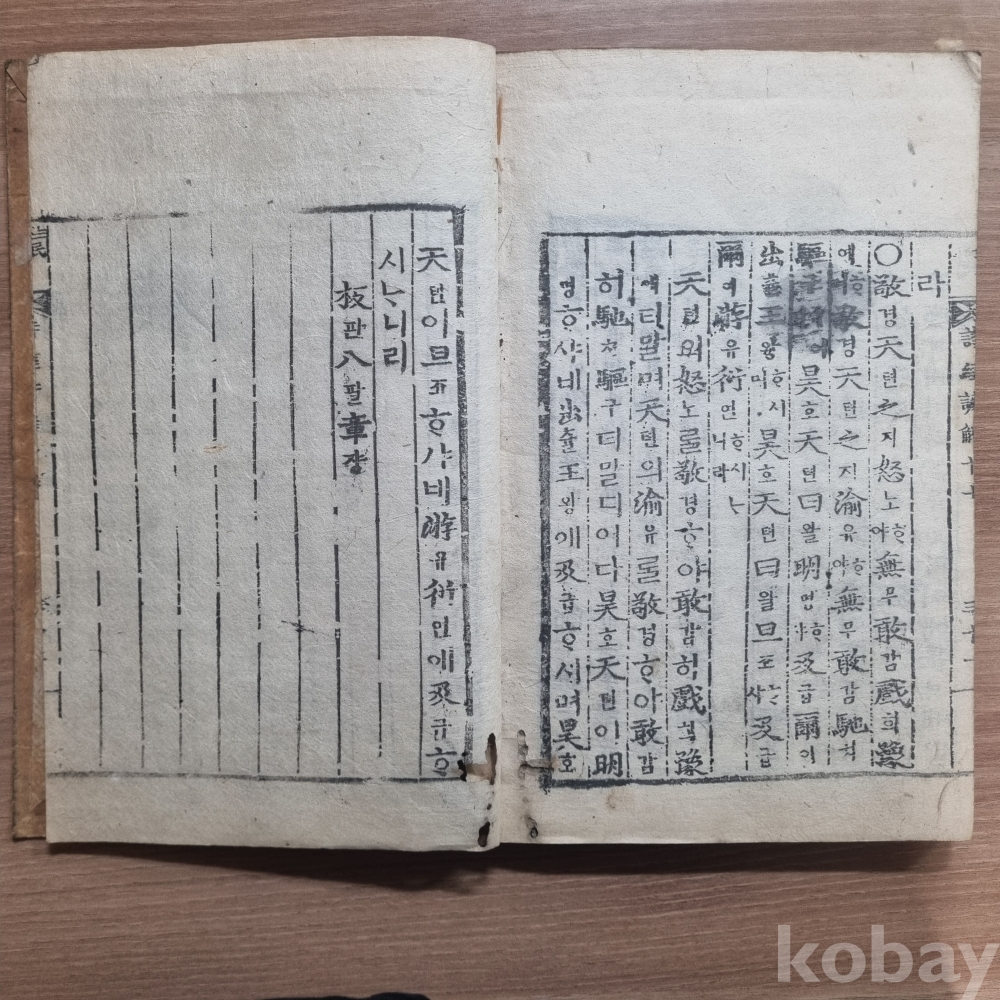 라
○敬경天텬之지怒노ᄒᆞ야無무敢감戱희豫
예ᄒᆞ며敬경天텬之지渝유ᄒᆞ야無무敢감馳치
驅구ᄒᆞ어昊호天텬曰왈明명ᄒᆞ야及급爾이
出츌王왕ᄒᆞ시며昊호天텬曰왈旦됴ᄂᆞᆫ사及급
爾이游유衍연ᄒᆞ시ᄂᆞ니라
天텬의怒노ᄅᆞᆯ敬경ᄒᆞ야敢감히戱희豫
예티말며天텬의渝유ᄅᆞᆯ敬경ᄒᆞ야敢감
히馳치驅구티말디어다昊호天텬이明
명ᄒᆞ샤네出츌王왕애及급ᄒᆞ시며昊호
天텬이旦됴ᄒᆞ샤네游유衍연애及급ᄒᆞ
시ᄂᆞ니라
板판八팔章쟝
詩經諺解
kobay